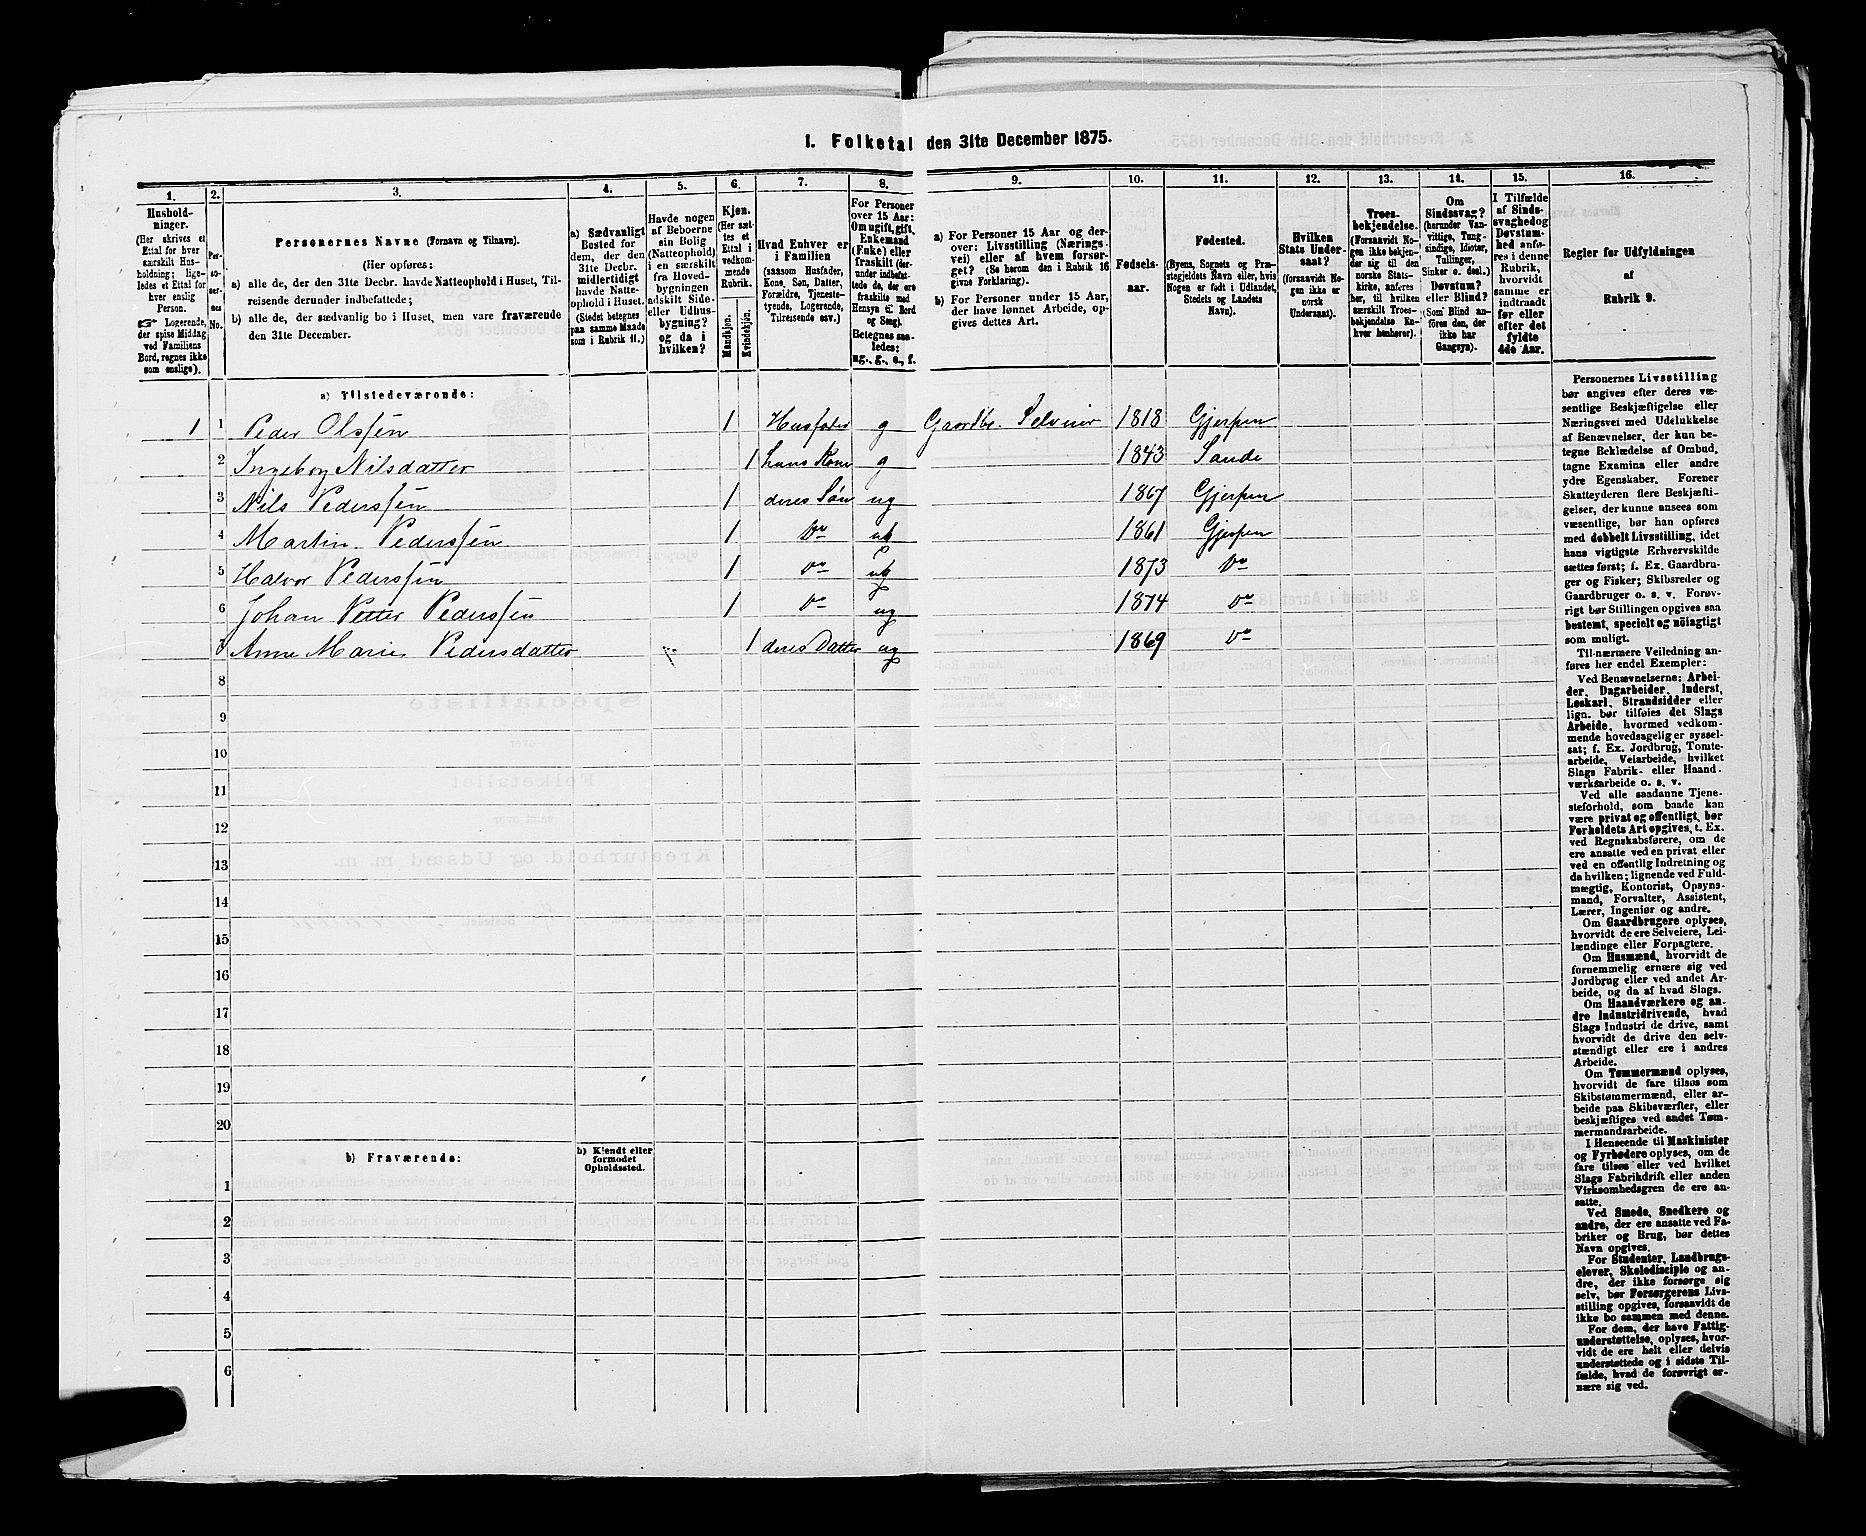 1. Folketal den 31te December 1875.
1. 2. 3. 4. 5. 6. 7. 8. 9. 10. 11. 12. 13. 14. 15. 16.
Hushold-
ninger.
(Her skrives et
Ettal for hver
særskilt Hus-
holdning; lige-
ledes et Ettal for
hver enslig
Person.
☞ Logerende,
der spise Middag
ved Familiens
Bord, regnes ikke
som enslige).
Personernes Navne (Fornavn og Tilnavn).
(Her opføres:
a) alle de, der den 31te Decbr. havde Natteophold i Huset, Til-
reisende derunder indbefattede;
b) alle de, der sædvanlig bo i Huset, men vare fraværende
den 31te December.
a) Sædvanligt
Bosted for
dem, der den
31te Decbr.
midlertidigt
havde Natte-
ophold i Huset.
(Stedet betegnes
paa samme Maade
som i Rubrik 11.)
Havde nogen
af Beboerne
sin Bolig
(Natteophold)
i en særskilt
fra Hoved-
bygningen
adskilt Side-
eller Udhus-
bygning?
og da i
hvilken?
Kjøn.
(Her sæt-
tes et
Ettal i
vedkom-
mende
Rubrik.
Mandkjøn.
Kvindekjøn.
Hvad Enhver er
i Familien
(saasom Husfader,
Kone, Søn, Datter,
Forældre, Tjeneste-
tyende, Logerende,
Tilreisende osv.)
For Personer
over 15 Aar:
Om ugift, gift,
Enkemand
(Enke) eller
fraskilt (der-
under indbefat-
tede de, der ere
fraskilte med
Hensyn til Bord
og Seng).
Betegnes saa-
ledes:
ug., g., e., f.
a) For Personer 15 Aar og der-
over: Livsstilling (Nærings-
vei) eller af hvem forsør-
get? (Se herom den i Rubrik 16
givne Forklaring).
b) For Personer under 15 Aar,
der have lønnet Arbeide, op-
gives dettes Art.
Fødsels-
aar.
Fødested.
(Byens, Sognets og Præ-
stegjeldets Navn eller, hvis
Nogen er født i Udlandet,
Stedets og Landets
Navn).
Hvilken
Stats Under-
saat?
(forsaavidt No-
gen ikke er
norsk
Undersaat).
Troes-
bekjendelse.
(Forsaavidt No-
gen ikke bekjen-
der sig til den
norske Stats-
kirke, anføres
her, til hvilken
særskilt Troes-
bekjendelse En-
hver henhører).
Om
Sindssvag?
(herunder Van-
vittige, Tung-
sindige, Idioter,
Tullinger,
Sinker o. desl.)
Døvstum?
eller Blind?
(Som Blind an-
føres den, der
ikke har
Gangsyn).
I Tilfælde
af Sinds-
svaghed og
Døvstum-
hed anfø-
res i denne
Rubrik,
hvorvidt
samme er
indtraadt
før eller
efter det
fyldte
4de Aar.
Regler for Udfyldningen
af
Rubrik 9.
a) Tilstedeværende:
1 1 Peder Olssen 1 Husfader g Gaardbr. Selveier 1818 Gjerpen
2 Ingeborg Nilsdatter 1 hans Kone g 1843 Sande
3 Nils Pederssen 1 deres Søn ug 1867 Gjerpen
4 Martin Pederssen 1 Do ug 1861 Gjerpen
5 Halvor Pederssen 1 Do ug 1873 Do
6 Johan Petter Pederssen 1 Do ug 1874 Do
7 Anne Marie Pedersdatter 1 deres Datter ug 1869 Do
8
9
10
11
12
13
14
15
16
17
18
19
20
b) Fraværende: b) Kjendt eller
formodet
Opholdssted.
1
2
3
4
5
6
Personernes Livsstilling
bør angives efter deres væ-
sentlige Beskjæftigelse eller
Næringsvei med Udelukkelse
af Benævnelser, der kun be-
tegne Beklædelse af Ombud,
tagne Examina eller andre
ydre Egenskaber. Forener
Skatteyderen flere Beskjæfti-
gelser, der kunne ansees som
væsentlige, bør han opføres
med dobbelt Livsstilling, idet
hans vigtigste Erhvervskilde
sættes først; f. Ex. Gaardbru-
ger og Fisker; Skibsreder og
Gaardbruger o. s. v. Forøv-
rigt bør Stillingen opgives saa
bestemt, specielt og nøiagtigt
som muligt.
Til nærmere Veiledning an-
føres her endel Exempler:
Ved Benævnelserne: Arbei-
der, Dagarbeider, Inderst,
Løskarl, Strandsidder eller
lign. bør tilføies det Slags
Arbeide, hvormed vedkom-
mende hovedsagelig er syssel-
sat; f. Ex. Jordbrug, Tomte-
arbeide, Veiarbeide, hvilket
Slags Fabrik- eller Haand-
værksarbeide o. s. v.
Ved alle saadanne Tjene-
steforhold, som baade kan
være privat og offentligt, bør
Forholdets Art opgives, t. Ex.
ved Regnskabsførere, om de
ere ansatte ved en privat eller
ved en offentlig Indretning og
da hvilken; lignende ved Fuld-
mægtig, Kontorist, Opsyns-
mand, Forvalter, Assistent,
Lærer, Ingeniør og andre.
Om Gaardbrugere oplyses,
hvorvidt de ere Selveiere, Lei-
lændinge eller Forpagtere.
Om Husmænd, hvorvidt de
fornemmelig ernære sig ved
Jordbrug eller ved andet Ar-
beide, og da af hvad Slags.
Om Haandværkere og an-
dre Industridrivende, hvad
Slags Industri de drive, samt
hvorvidt de drive den selv-
stændigt eller ere i andres
Arbeide.
Om Tømmermænd oplyses,
hvorvidt de fare tilsøs som
Skibstømmermænd, eller ar-
beide paa Skibsværfter, eller
beskjæftiges ved andet Tøm-
mermandsarbeide.
I Henseende til Maskinister
og Fyrbødere oplyses, om de
fare tilsøs eller ved hvilket
Slags Fabrikdrift eller anden
Virksomhedsgren de ere an-
satte.
Ved Smede, Snedkere og
andre, der ere ansatte ved Fa-
briker og Brug, bør dettes
Navn opgives.
For Studenter, Landbrugs-
elever, Skoledisciple og an-
dre, der ikke forsørge sig
selv, bør Forsørgerens Livs-
stilling opgives, forsaavidt de
ikke bo sammen med denne.
For dem, der have Fattig-
understøttelse, oplyses, hvor-
vidt de ere helt eller delvis
understøttede og i sidste Til-
fælde, hvad de forøvrigt er-
nære sig ved.